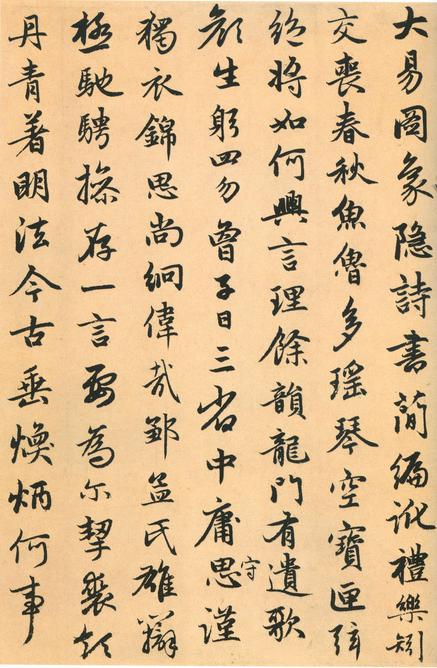 大易圖象隱詩書簡編訛禮樂矧
交喪春秋魚魯多瑤琴空寶匣弦
絕將如何興言理餘韻龍門有遺歌
顏生躬四勿曾子日三省中庸思守謹
獨衣錦思尚絅偉哉鄒孟氏雄辯
極馳騁操存一言要為尔挈裘領
丹青著明法今古垂煥炳何事